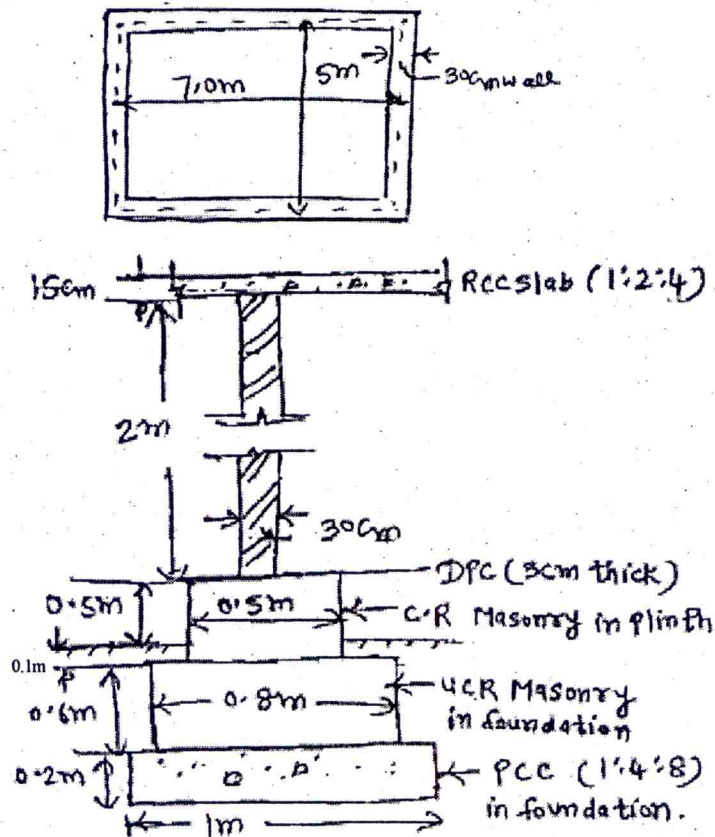 7.0m
5m
30cm wall
15cm
RCC slab (1:2:4)
2m
30cm
DPC (3cm thick)
0.5m
0.5m
C.R Masonry in plinth
0.1m
0.6m
0.8m
U.C.R Masonry
in foundation
0.2m
PCC (1:4:8)
in foundation.
1m